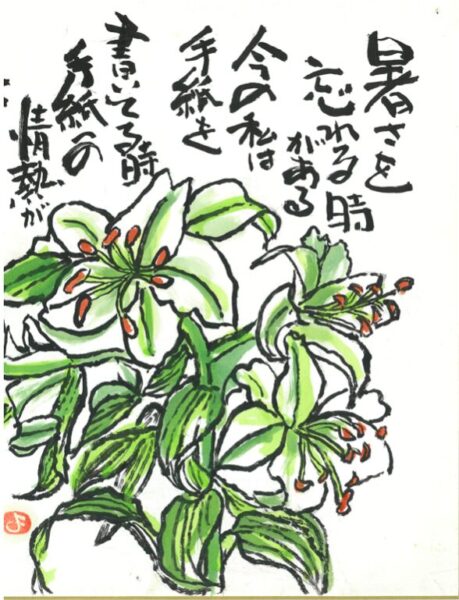 暑さを
忘れる時
がある
今の私は
手紙を
書いてる時
手紙の
情熱が